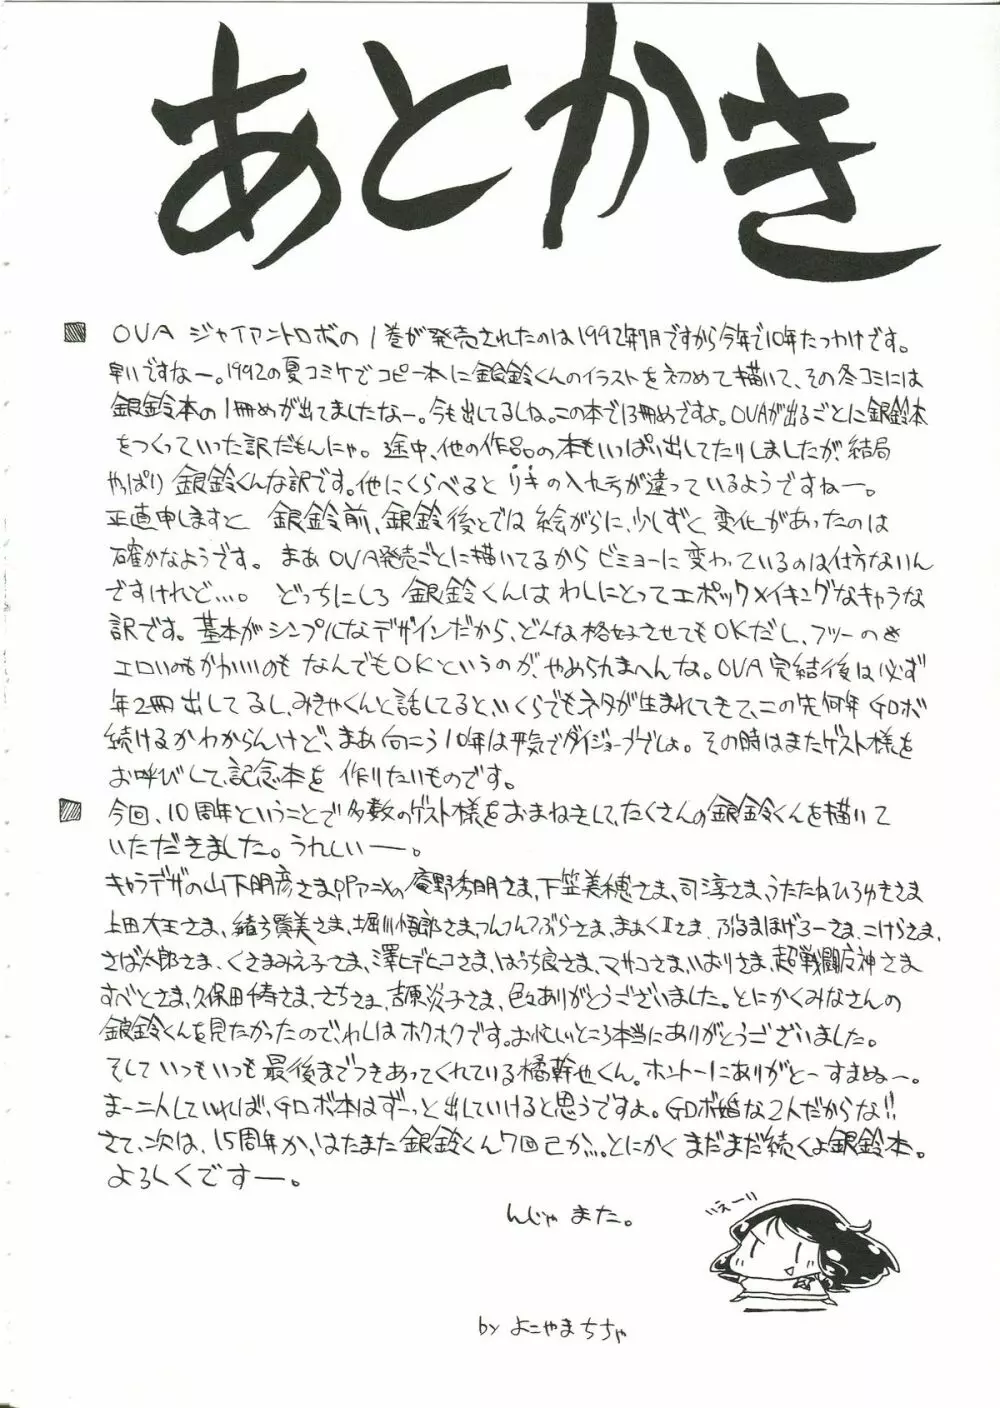 あとかき
OVA ジャイアントロボの1巻が発売されたのは1992年7月ですから今年で10年たつわけです。
早いですなー。1992の夏コミケでコピー本に銀鈴くんのイラストを初めて描いて、その冬コミには
銀鈴本の1冊めが出てましたなー。今も出してるしね。この本で13冊めですよ。OVAが出るごとに銀鈴本
をつくっていった訳だもんにゃ。途中、他の作品の本もいっぱい出してたりしましたが、結局
やっぱり銀鈴くんな訳です。他にくらべるとリキの入れ方が違っているようですねー。
正直申しますと 銀鈴前、銀鈴後とでは絵がらに、少しずつ変化があったのは
確かなようです。まあOVA発売ごとに描いてるからビミョーに変わっているのは仕方ないん
ですけれど…。どっちにしろ 銀鈴くんはわしにとってエポックメイキングなキャラな
訳です。基本がシンプルなデザインだから、どんな格好させてもOKだし、フツーのも
エロいのもかわいいのもなんでもOKというのが、やめられまへんな。OVA完結後は必ず
年2冊出してるし、みきゃくんと話してると、いくらでもネタが生まれてきて、この先何年GロボÂ
続けるかわからんけど、まあ向こう10年は平気でダイジョーブでしょ。その時はまたゲスト様を
お呼びして、記念本を 作りたいものです。
今回、10周年ということで多数のゲスト様をおまねきして、たくさんの銀鈴くんを描いて
いただきました。うれしいー。
キャラデザの山下明彦さま、OPアニメの庵野秀明さま、下笠美穂さま、司淳さま、うたたねひろゆきさま
上田大王さま、緒方賢美さま、堀川悟郎さま、つんつんつぶらさま、まぁくIIさま、ぶるまほげろーさま、こけらさま、
さば太郎さま、くさまみえ子さま、澤ヒデヒコさま、はうち良さま、マサコさま、いおりさま、超戦闘反神さま
すべとさま、久保田侍さま、さちさま、吉原炎子さま、色々ありがとうございました。とにかくみなさんの
銀鈴くんを見たかったので、わしはホクホクです。お忙しいところ本当にありがとうございました。
そしていつもいつも最後までつきあってくれている橘幹也くん。ホントーにありがとーすまぬー。
まー二人していれば、Gロボ本はずーっと出していけると思うですよ。Gロボ婚な2人だからな!!
さて、次は、15周年か、はたまた銀鈴くん7回忌か…。とにかくまだまだ続くよ銀鈴本。
よろしくですー。
んじゃまた。
いえーい
by よこやまちちゃ